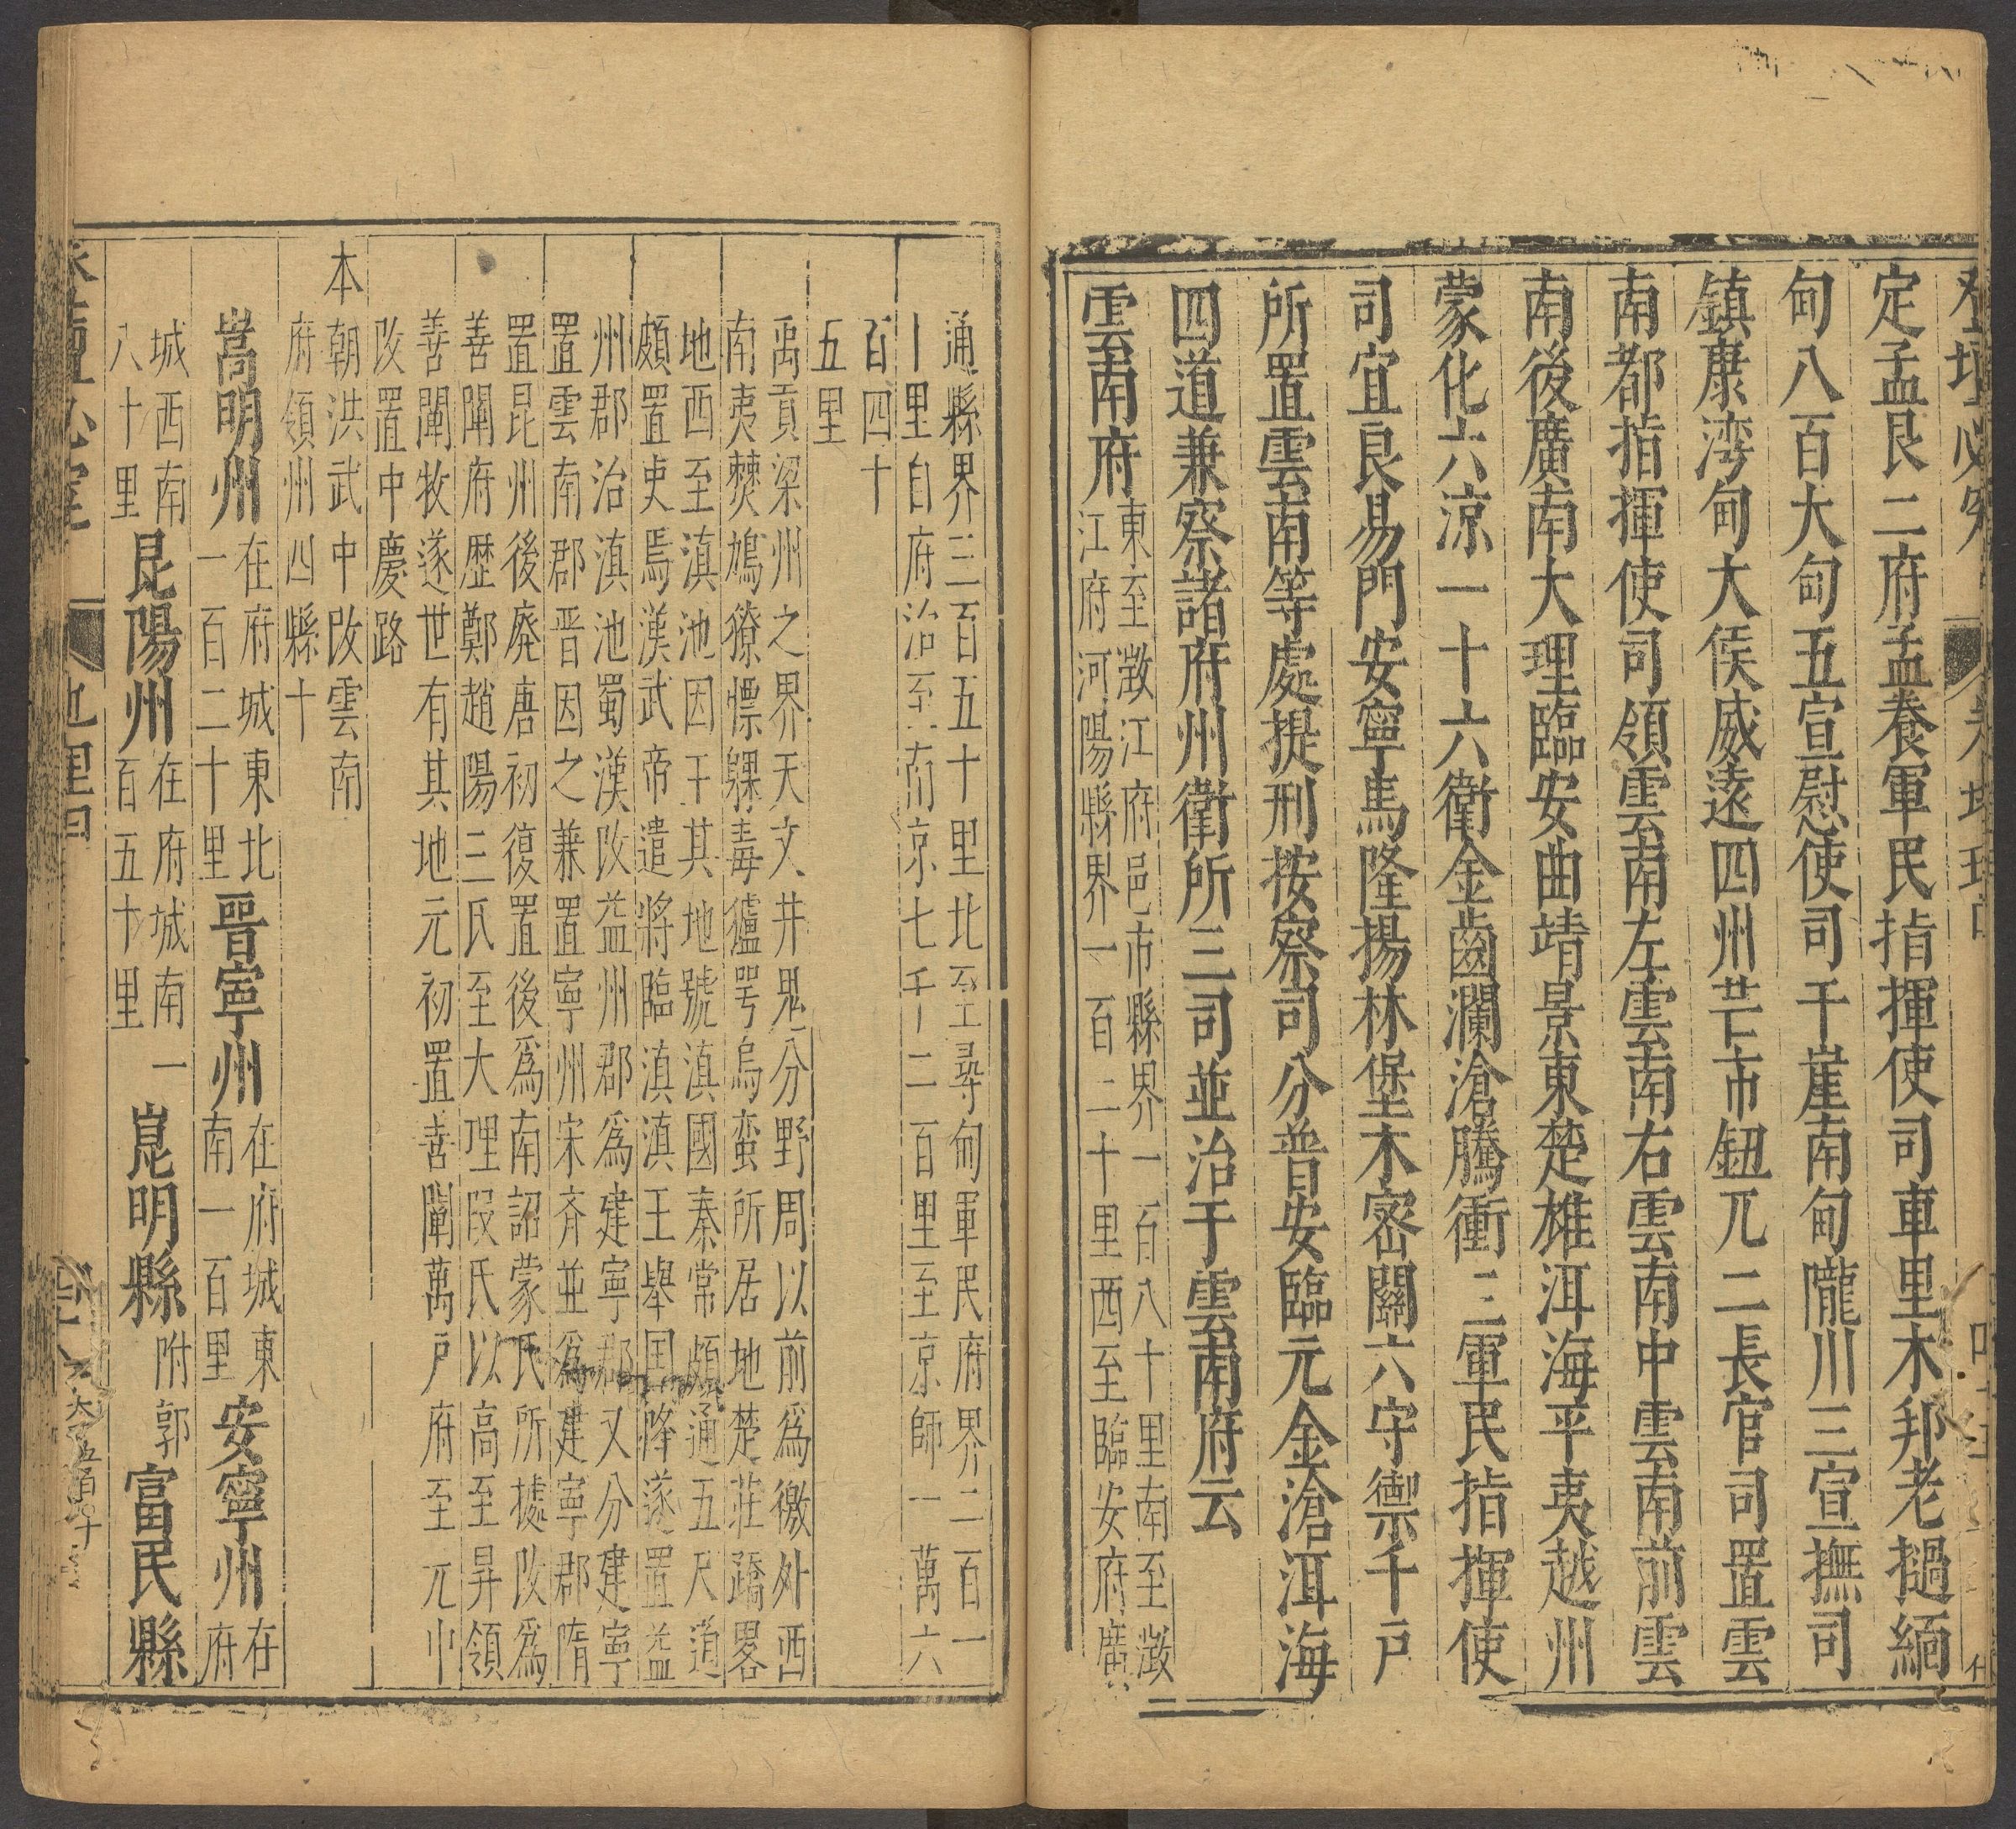 定孟艮二府孟養軍民指揮使司車里木邦老撾緬
甸八百大甸五宣慰使司干崖南甸隴川三宣撫司
鎮康灣甸大侯威遠四州芒市鈕兀二長官司置雲
南都指揮使司領雲南左雲南右雲南中雲南前雲
南後廣南大理臨安曲靖景東楚雄洱海平夷越州
蒙化六涼一十六衛金齒瀾滄騰衝三軍民指揮使
司宜良易門安寧馬隆揚林堡木密關六守禦千戶
所置雲南等處提刑按察司分普安臨元金滄洱海
四道兼察諸府州衛所三司並治于雲南府云
雲南府
東至澂江府邑市縣界一百八十里南至澂
江府河陽縣界一百二十里西至臨安府廣
通縣界三百五十里北至尋甸軍民府界二百一
十里自府治至南京七千二百里至京師一萬六
百四十
五里
禹貢梁州之界天文井鬼分野周以前為徼外西
南夷僰鳩獠慓躶毒獹咢烏蛮所居地楚莊蹻畧
地西至滇池因王其地號滇國秦常頗通五尺道
頗置吏焉漢武帝遣將臨滇滇王舉国降遂置益
州郡治滇池蜀漢改益州郡為建寧郡又分建寧
置雲南郡晋因之兼置寧州宋齊並為建寧郡隋
置昆州後廢唐初復置後為南詔蒙氏所據改為
善闡府歷鄭趙陽三氏至大理段氏以高至昇領
善闡牧遂世有其地元初置善闡萬戶府至元中
改置中慶路
本朝洪武中改雲南
府領州四縣十
嵩明州
在府城東北
一百二十里
晉寧州
在府城東
南一百里
安寧州
在
府
城西南
八十里
昆陽州
在府城南一
百五十里
崑明縣
附郭
富民縣
地理四